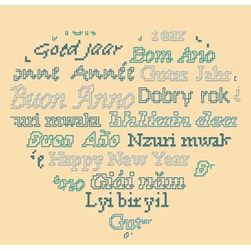 year
Goed jaar Bom Ano
onne Année Gutes Jahr
Buon Anno Dobry rok
uri mwaka bhliain dea
Buon Año Nzuri mwak
Happy New Year &
Giái năm
Lyi bir yil
Gut